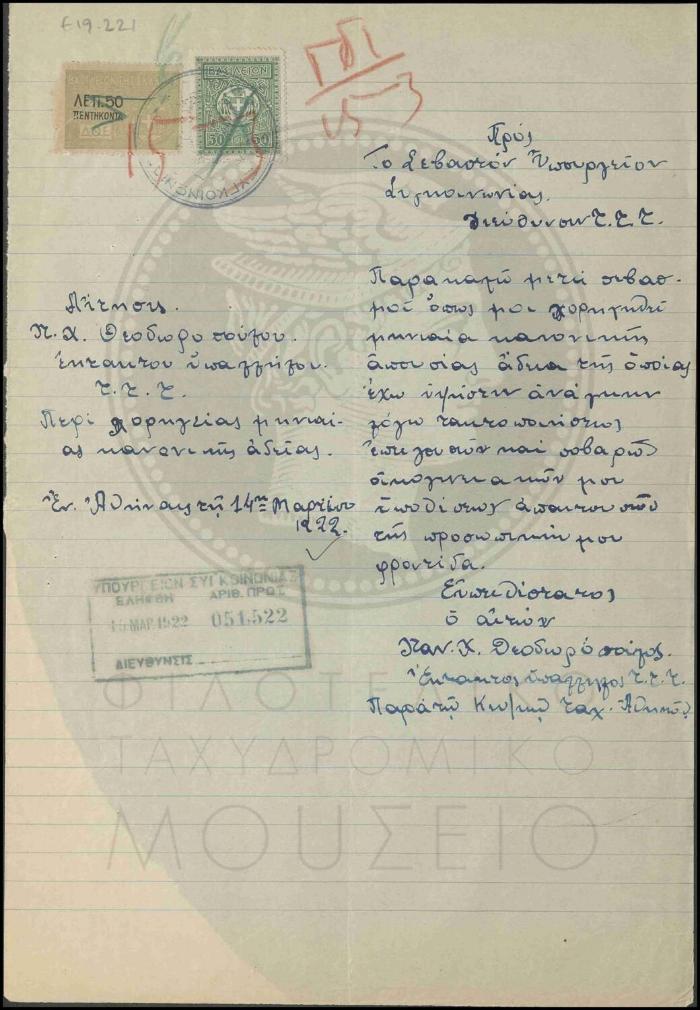 f19-221
ΛΕΠ.50
ΠΕΝΤΗΚΟΝΤΑ
ΒΑΣΙΛΕΙΟΝ
50 50
15-3
15-3
Πρός
Το Σεβαστόν Ὑπουργείον
Συγκοινωνίας.
Διεύθυνσιν Τ.Τ.Τ.
Αἴτησις.
Π.Χ. Θεοδωροπούλου.
ἐκτάκτου ὑπαλλήλου.
Τ.Τ.Τ.
Περὶ χορηγείας μηνιαί-
ας κανονικῆς ἀδείας.
Ἐν Ἀθήναις τῇ 14ῃ Μαρτίου
1922.
Παρακαλῶ μετὰ σεβασ-
μοῦ ὅπως μοι χορηγηθεῖ
μηνιαία κανονικῆς
ἀπουσίας ἄδεια τῆς ὁποίας
ἔχω ὑψίστην ἀνάγκην
λόγω τακτοποιήσεως
ἐπειγουσῶν καὶ σοβαρῶν
οἰκογενειακῶν μου
ὑποθέσεων ἀπαιτουσῶν
τῆς προσωπικήν μου
φροντίδα.
Εὐπειθέστατος
ὁ αἰτῶν
Παν. Χ. Θεοδωρόπουλος.
Ἔκτακτος ὑπάλληλος Τ.Τ.Τ.
Παρὰ τῷ Κεν/κῷ ταχ. Ἀθηνῶν
ΥΠΟΥΡΓΕΙΟΝ ΣΥΓΚΟΙΝΩΝΙΑΣ
ΕΛΗΦΘΗ ΑΡΙΘ. ΠΡΩΤ.
15 ΜΑΡ. 1922 051522
ΔΙΕΥΘΥΝΣΙΣ
ΦΙΛΟΤΕΛΙΚΟ
ΤΑΧΥΔΡΟΜΙΚΟ
ΜΟΥΣΕΙΟ